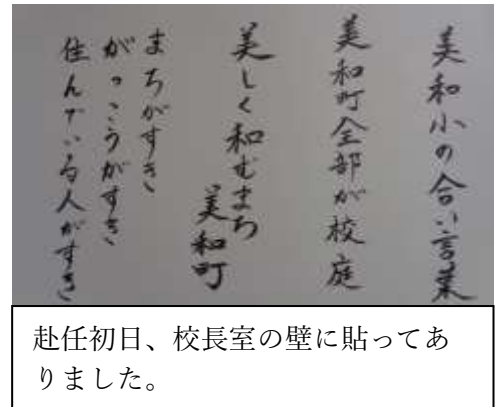 美和小の合い言葉
美和町全部が校庭
美しく和むまち
美和町
まちがすき
がっこうがすき
住んでいる人がすき
赴任初日、校長室の壁に貼ってあ
りました。